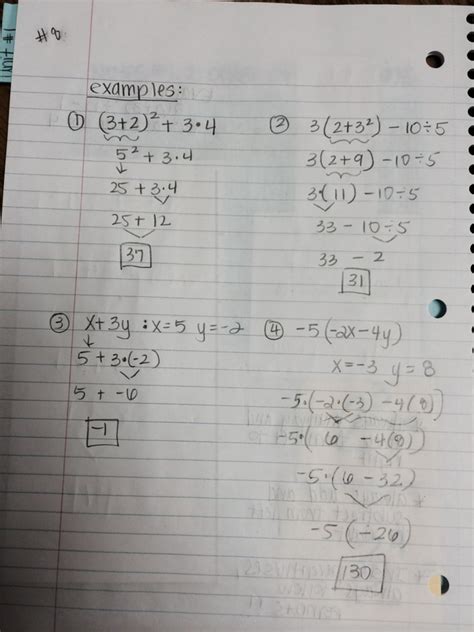 #8
examples:
① (3+2)² + 3·4
5² + 3·4
25 + 3·4
25 + 12
37
② 3(2+3²) - 10÷5
3(2+9) - 10÷5
3·(11) - 10÷5
33 - 10÷5
33 - 2
31
③ x+3y : x=5 y=-2
5 + 3·(-2)
5 + -6
-1
④ -5(-2x-4y)
x=-3 y=8
-5·(-2·(-3) -4(8))
-5·(6 -4(8))
-5·(6 - 32)
-5(-26)
130